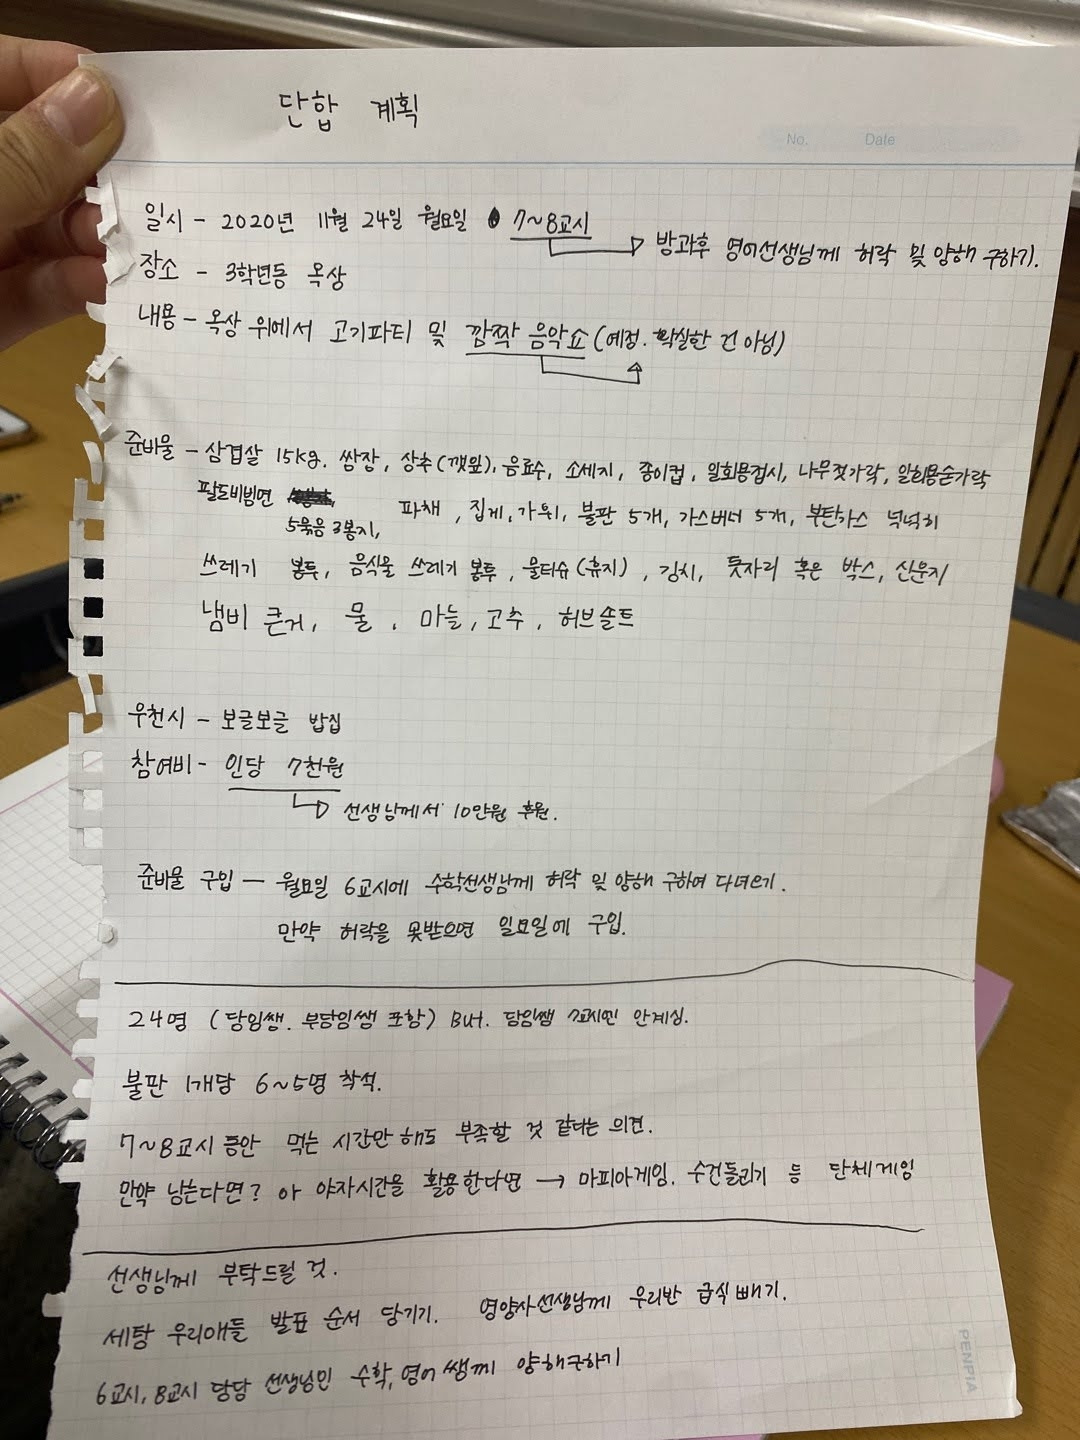 단합 계획
No. Date
일시 - 2020년 11월 24일 월요일 7~8교시
방과후 영어선생님께 허락 및 양해 구하기.
장소 - 3학년동 옥상
내용 - 옥상 위에서 고기파티 및 깜짝 음악쇼 (예정. 확실한 건 아님)
준비물 - 삼겹살 15kg. 쌈장, 상추(깻잎), 음료수, 소세지, 종이컵, 일회용접시, 나무젓가락, 일회용숟가락
팔도비빔면 파채, 집게, 가위, 불판 5개, 가스버너 5개, 부탄가스 넉넉히
5묶음 3봉지,
쓰레기 봉투, 음식물 쓰레기 봉투, 물티슈(휴지), 김치, 돗자리 혹은 박스, 신문지
냄비 큰거, 물, 마늘, 고추, 허브솔트
우천시 - 보글보글 밥집
참여비 - 인당 7천원
선생님께서 10만원 후원.
준비물 구입 - 월요일 6교시에 수학선생님께 허락 및 양해 구하여 다녀오기.
만약 허락을 못받으면 일요일에 구입.
24명 (담임쌤. 부담임쌤 포함) But. 담임쌤 7교시엔 안계심.
불판 1개당 6~5명 착석.
7~8교시 동안 먹는 시간만 해도 부족할 것 같다는 의견.
만약 남는다면? 아 야자시간을 활용한다면 → 마피아게임. 수건돌리기 등 단체게임
선생님께 부탁드릴 것.
세탐 우리애들 발표 순서 당기기. 영양사선생님께 우리반 급식 빼기.
6교시, 8교시 담당 선생님인 수학, 영어 쌤께 양해구하기
PENPIA